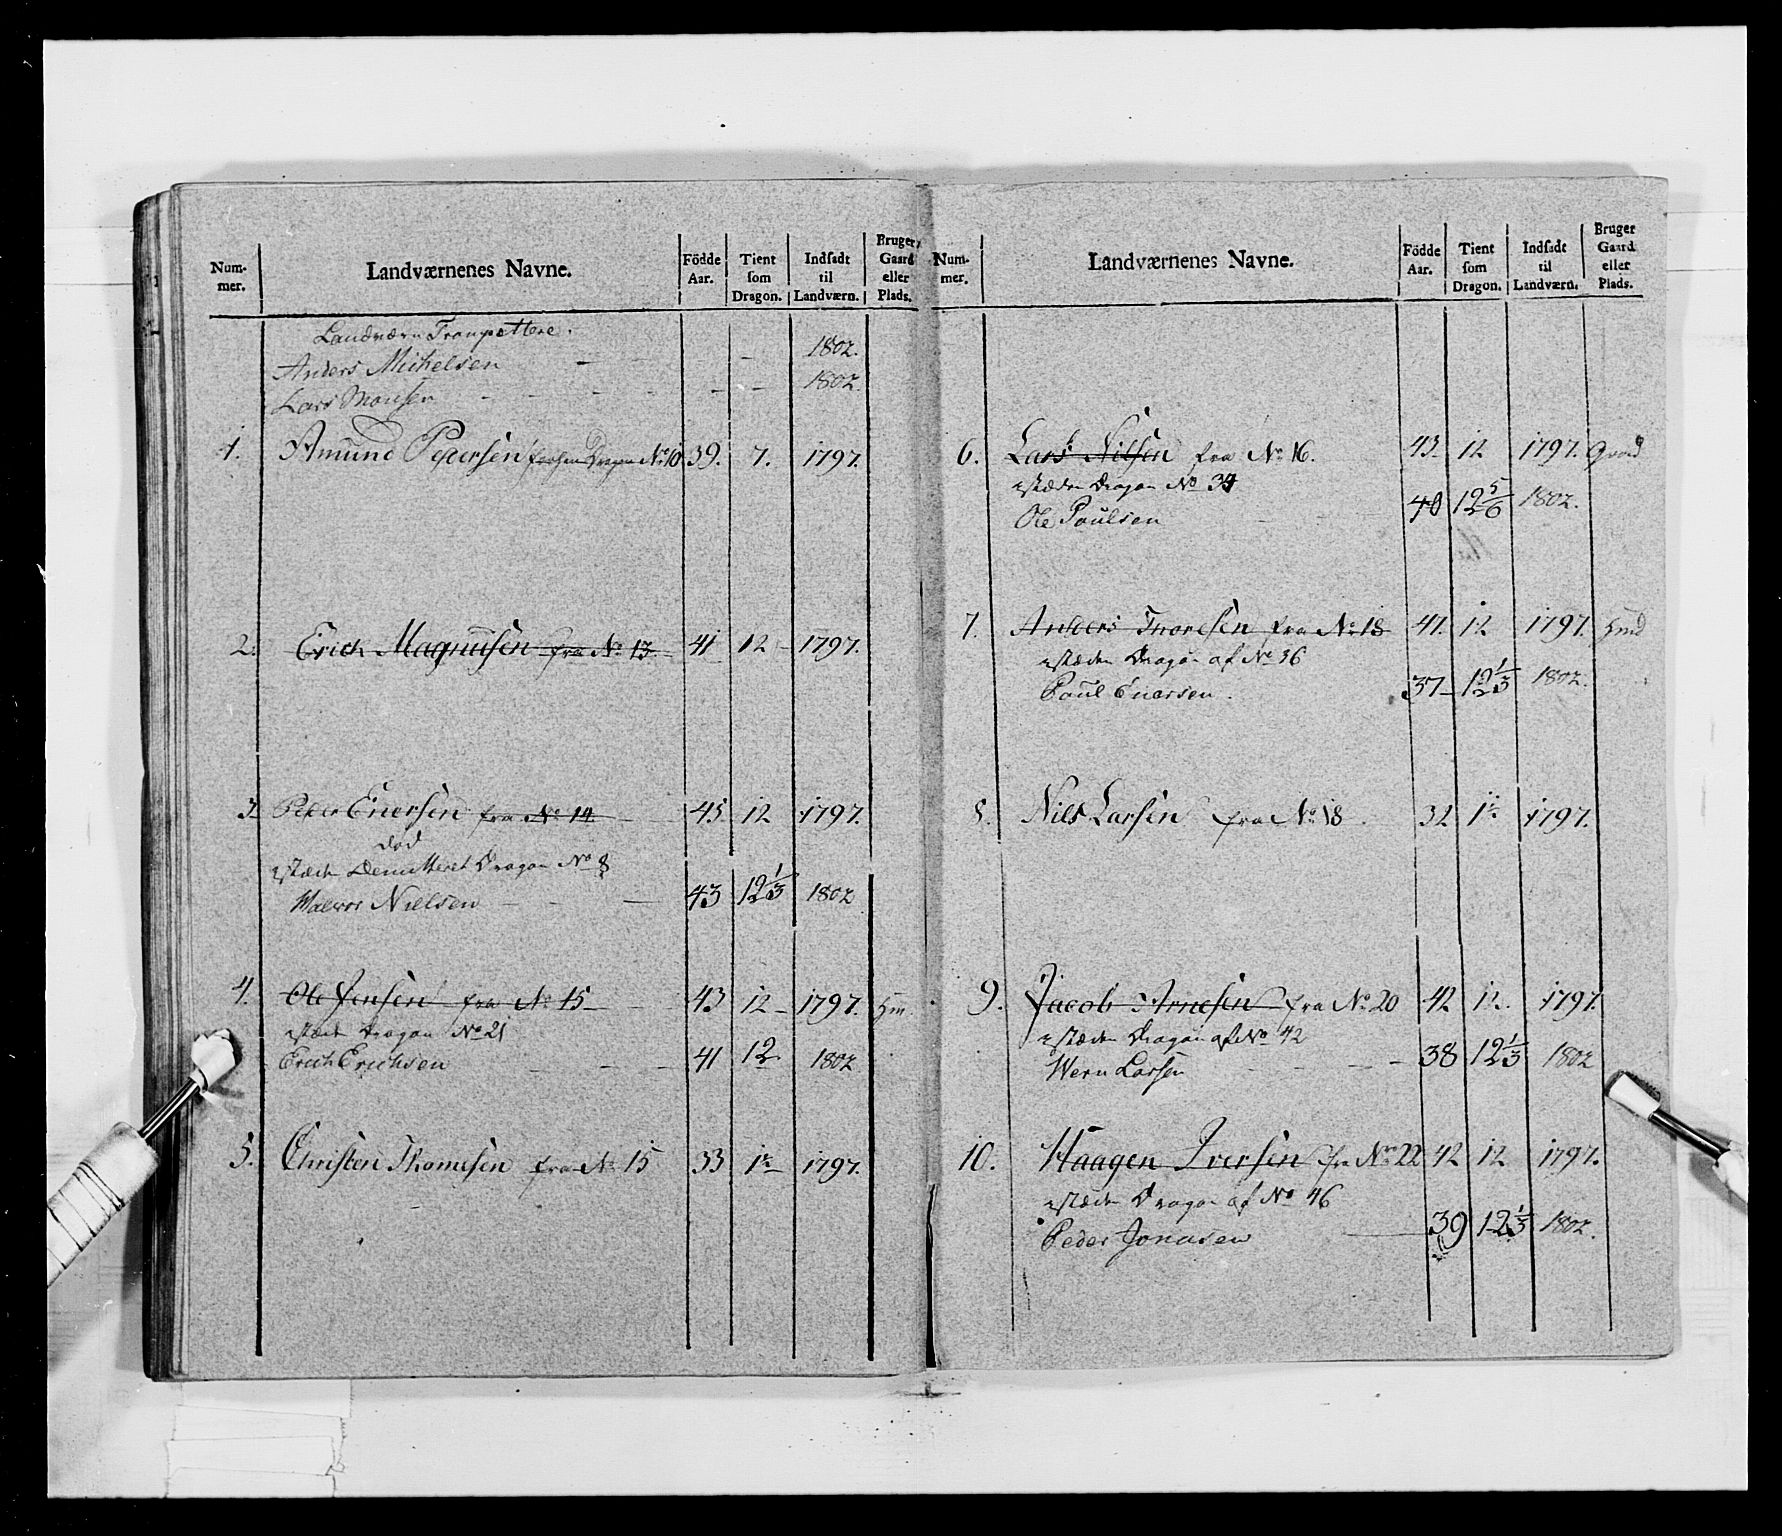 Num-
mer.
Landværnenes Navne.
Födde
Aar.
Tient
som
Dragon.
Indsadt
til
Landværn.
Bruger
Gaard
eller
Plads.
Landværn Trompettere.
Anders Michelsen - - 1802.
Lars Monsen - - - - - - 1802.
1. Amund Pedersen forhen Dragon No 10 39. 7. 1797.
2. Erich Magnusen fra No 13 41 12 1797.
3. Peder Enersen fra No 14 45 12 1797.
død
istæden Demitteret Dragon No 8
Halvor Nielsen - - - 43 12 1/3 1802
4. Ole Jensen fra No 15 43 12 1797.
istæden Dragon No 21
Erich Erichsen - - - 41 12 1802
5. Christen Thomesen fra No 15 33 12 1797.
Num-
mer.
Landværnenes Navne.
Födde
Aar.
Tient
som
Dragon.
Indsadt
til
Landværn.
Bruger
Gaard
eller
Plads.
6. Lars Nilsen fra No 16. 43 12 1797.
istæden Dragon No 34
Ole Poulsen - - 40 12 5/6 1802.
7. Anders Thoresen fra No 18 41. 12 1797.
istæden Dragon af No 36
Poul Enersen. 37 12 1/3 1802.
8. Nils Larsen fra No 18 32 12 1797.
9. Jacob Arnesen fra No 20 42 12. 1797.
istæden Dragon af No 42
Larsen - - - 38 12 1/3 1802
10. Haagen Iversen fra No 22 42 12 1797.
istæden Dragon af No 46
Peder Jonasen 39 12 1/3 1802.